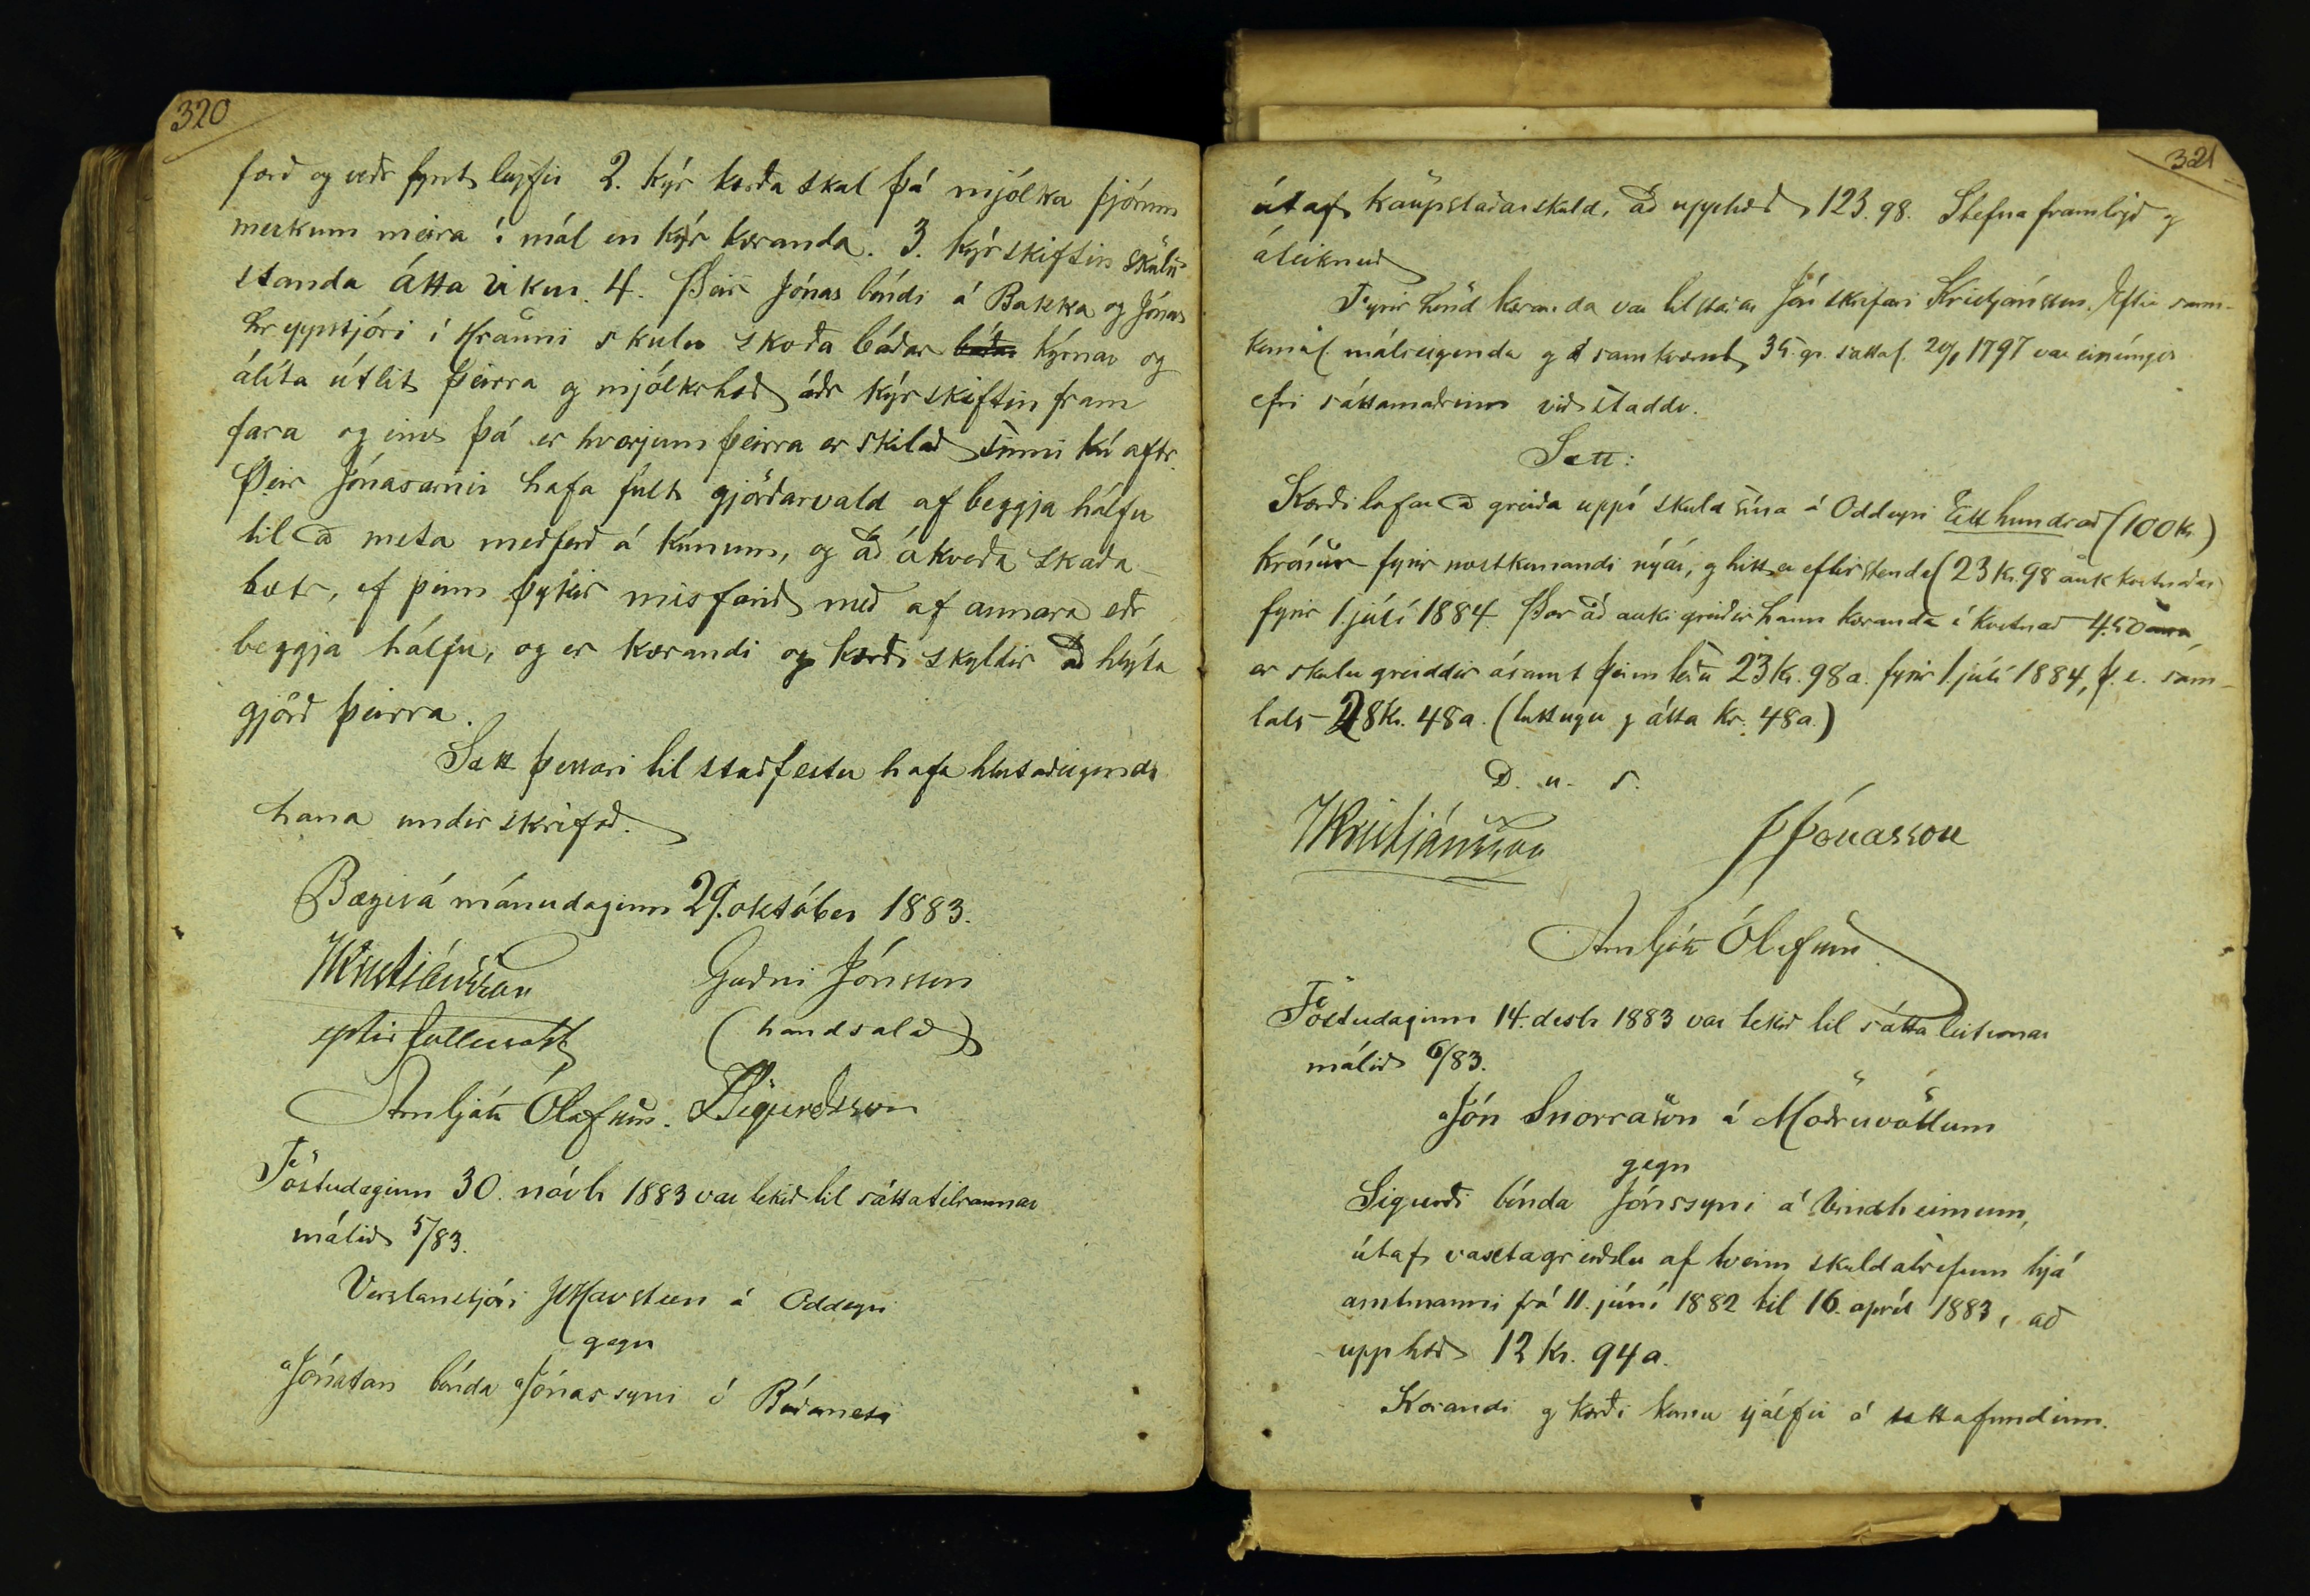 320
færð og veðr fyrst leyfir 2. kýr kærða skal þá mjólka fjórum
merkum meira í mál en kýr kæranda. 3. kýrskiftin skulu
standa átta vikur. 4. Þeir Jónas bóndi á Bakka og Jónas
hreppstjóri í Hrauni skulu skoða báðar báðar kýrnar og
álíta útlit þeirra og mjólkrhæð áðr kýrskiftin fram
fara og eins þá er hverjum þeirra er skilað sinni kú aftr.
Þeir Jónasarnir hafa fult gjörðarvald af beggja hálfu
til að meta meðferð á kúnum, og að ákveða skaða-
bœtr, ef þeim þykir misfarið með af annara eðr
beggja hálfu, og er kærandi og kærði skyldir að hlýta
gjörð þeirra.
Sætt þessari til staðfestu hafa hlutaðeigendr
hana undirskrifað.
Bægisá mánudaginn 29. október 1883.
JKristjánsson Guðni Jónsson
eptir fullmakt (handsalað)
Arnljótr Ólafsson. SSigurðsson
Föstudaginn 30. nóvbr 1883 var tekið til sáttatilraunar
málið 5/83.
Verslanstjóri JVHavsteen á Oddeyri
gegn
Jónatan bónda Jónassyni á Búðarnesi
321
útaf kaupstaðarskuld, að upphæð 123.98. Stefna framlögð og
áteiknuð
Fyrir hönd kæranda var tilstaðar Jón skrifari Kristjánsson. Eftir sam-
komul. málseigenda og samkvæmt 35. gr. sáttaf. 20/1 1797 var einúngis
efri sáttamaðrinn viðstaddr.
Sætt:
Kærði lofar að greiða uppí skuld sína á Oddeyri Eitt hundrað (100 kr)
krónur fyrir næstkomandi nýár, og hitt er eftir stendr (23 kr. 98 auk kostnaðar
fyrir 1. júlí 1884. Þar að auki greiðir hann kæranda í kostnað 4.50 aura,
er skulu greiddir ásamt þeim 23 kr. 98 a. fyrir 1. júlí 1884, þ. e. sam-
tals 28 kr. 48 a. (tuttugu og átta kr. 48 a.)
D. u. s.
JKristjánsson JJónasson
Arnljótr Ólafsson
Föstudaginn 14. desbr 1883 var tekið til sáttaleitunar
málið 6/83.
Jón Snorrason á Möðruvöllum
gegn
Sigurði bónda Jónssyni á Vindheimum,
útaf vaxtagreiðslu af tveim skuldabréfum hjá
amtmanni frá 11. júní 1882 til 16. apríl 1883, að
upphæð 12 kr. 94 a.
Kærandi og kærði komu sjálfir á sáttafundinn.